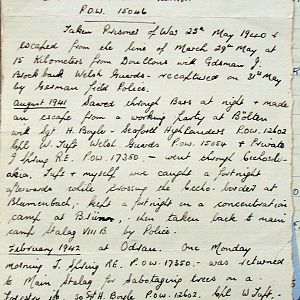 P.O.W. 15046
Taken Prisoner of War 25th May 1940 &
escaped from the line of March 29th May at
15 Kilometers from Doullons with Gdsman J.
Brockbank Welsh Guards - recaptured on 31st May
by German Field Police.
August 1941 Sawed through Bars at night & made
an escape from a working party at Bölten
with Sgt H. Boyle - Seaforth Highlanders P.O.W. 12602
Cpl W. Tuft Welsh Guards P.O.W. 15054 & Private
J Spring R.E. P.O.W. 17350 - went through Czchoslo-
akia. Tuft & myself were caught a fortnight
afterwards while crossing the Czcho. border at
Blumenbach; kept a fortnight in a concentration
camp at then taken back to main
camp Stalag VIIIB by Police.
February 1942 at Odrau. One Monday
morning J. Spring R.E. P.O.W. 17350 - was returned
to Main Stalag for Sabotaging trees on a
Tuesday Sgt H. Boyle P.O.W. 12602. Cpl W Tuft -